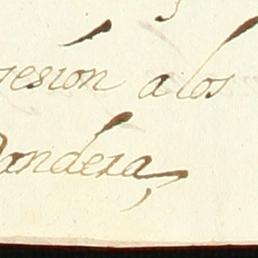 resion a los
Bandera,